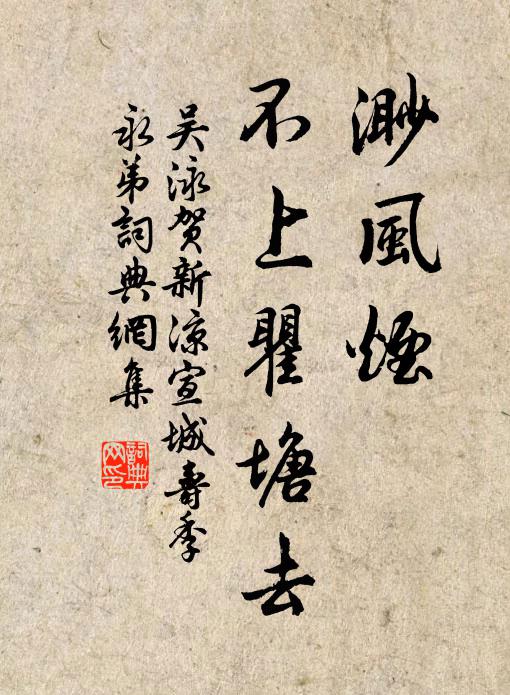 渺風煙
不上瞿塘去
吴泳贺新凉宣城壽季
永弟詞典網集
詞典
网印